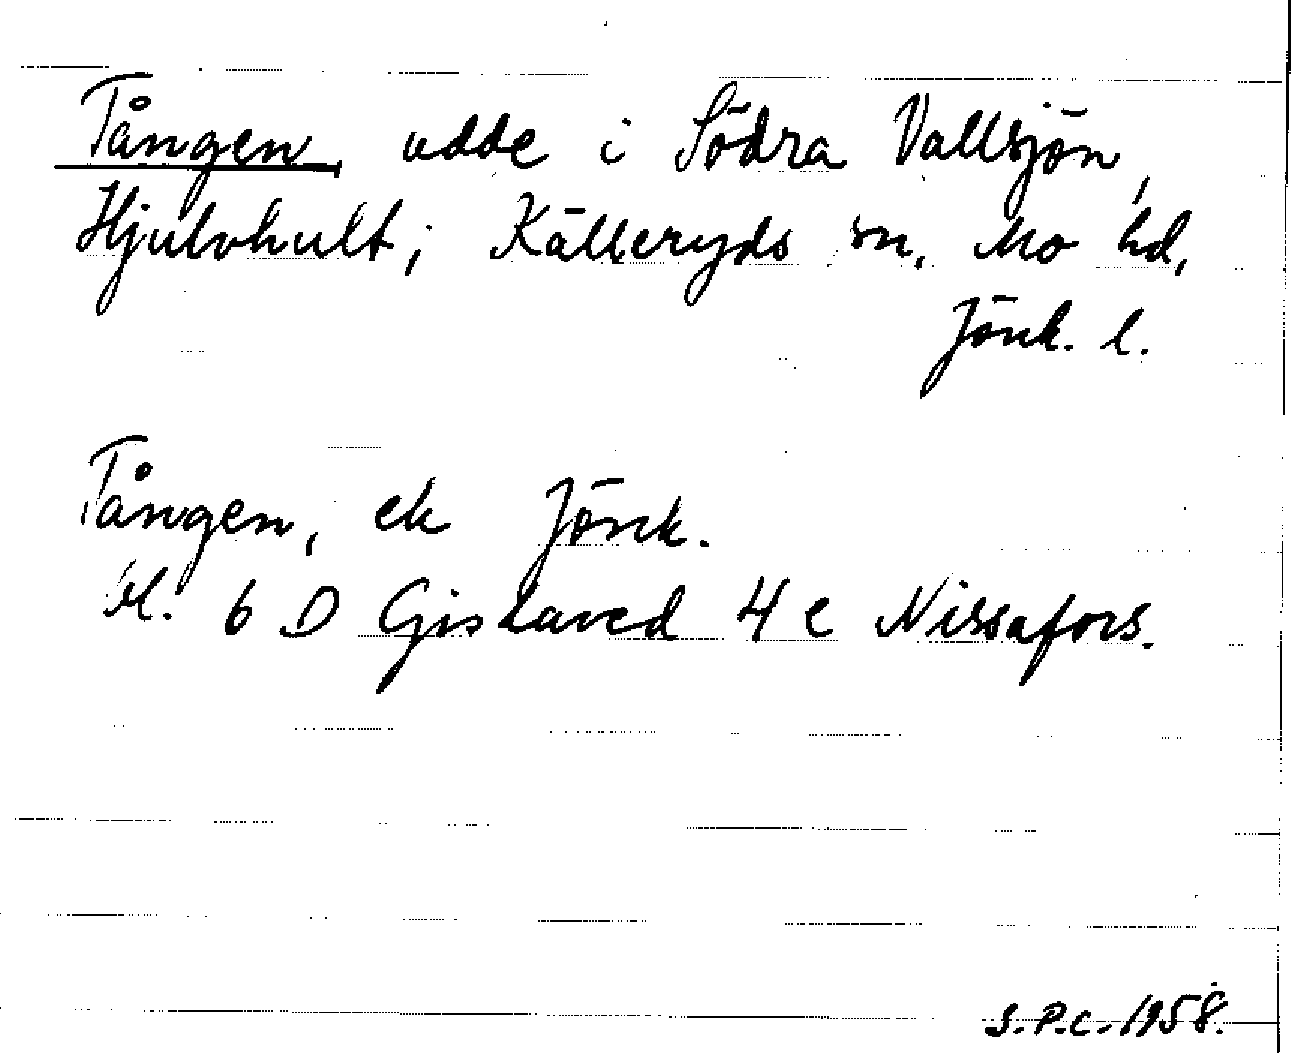 Tången, udde i Södra Vallsjön,
Hjulvhult, Källeryds sn, Mo hd,
Jönk. l.
Tången, ek Jönk.
bl. 6 D Gislaved 4 e Nissafors.
S.P.C. 1958.